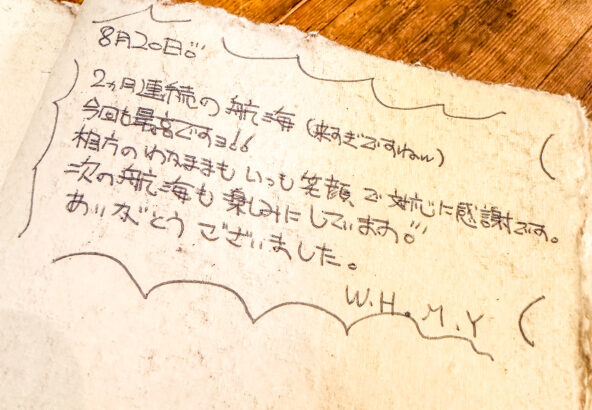 8月20日!!
2ヵ月連続の航海(来すぎですねw)
今回も最高ですヨ!!
相方のわがままもいつも笑顔で対応に感謝です。
次の航海も楽しみにしています!!
ありがとうございました。
W.H. M.Y